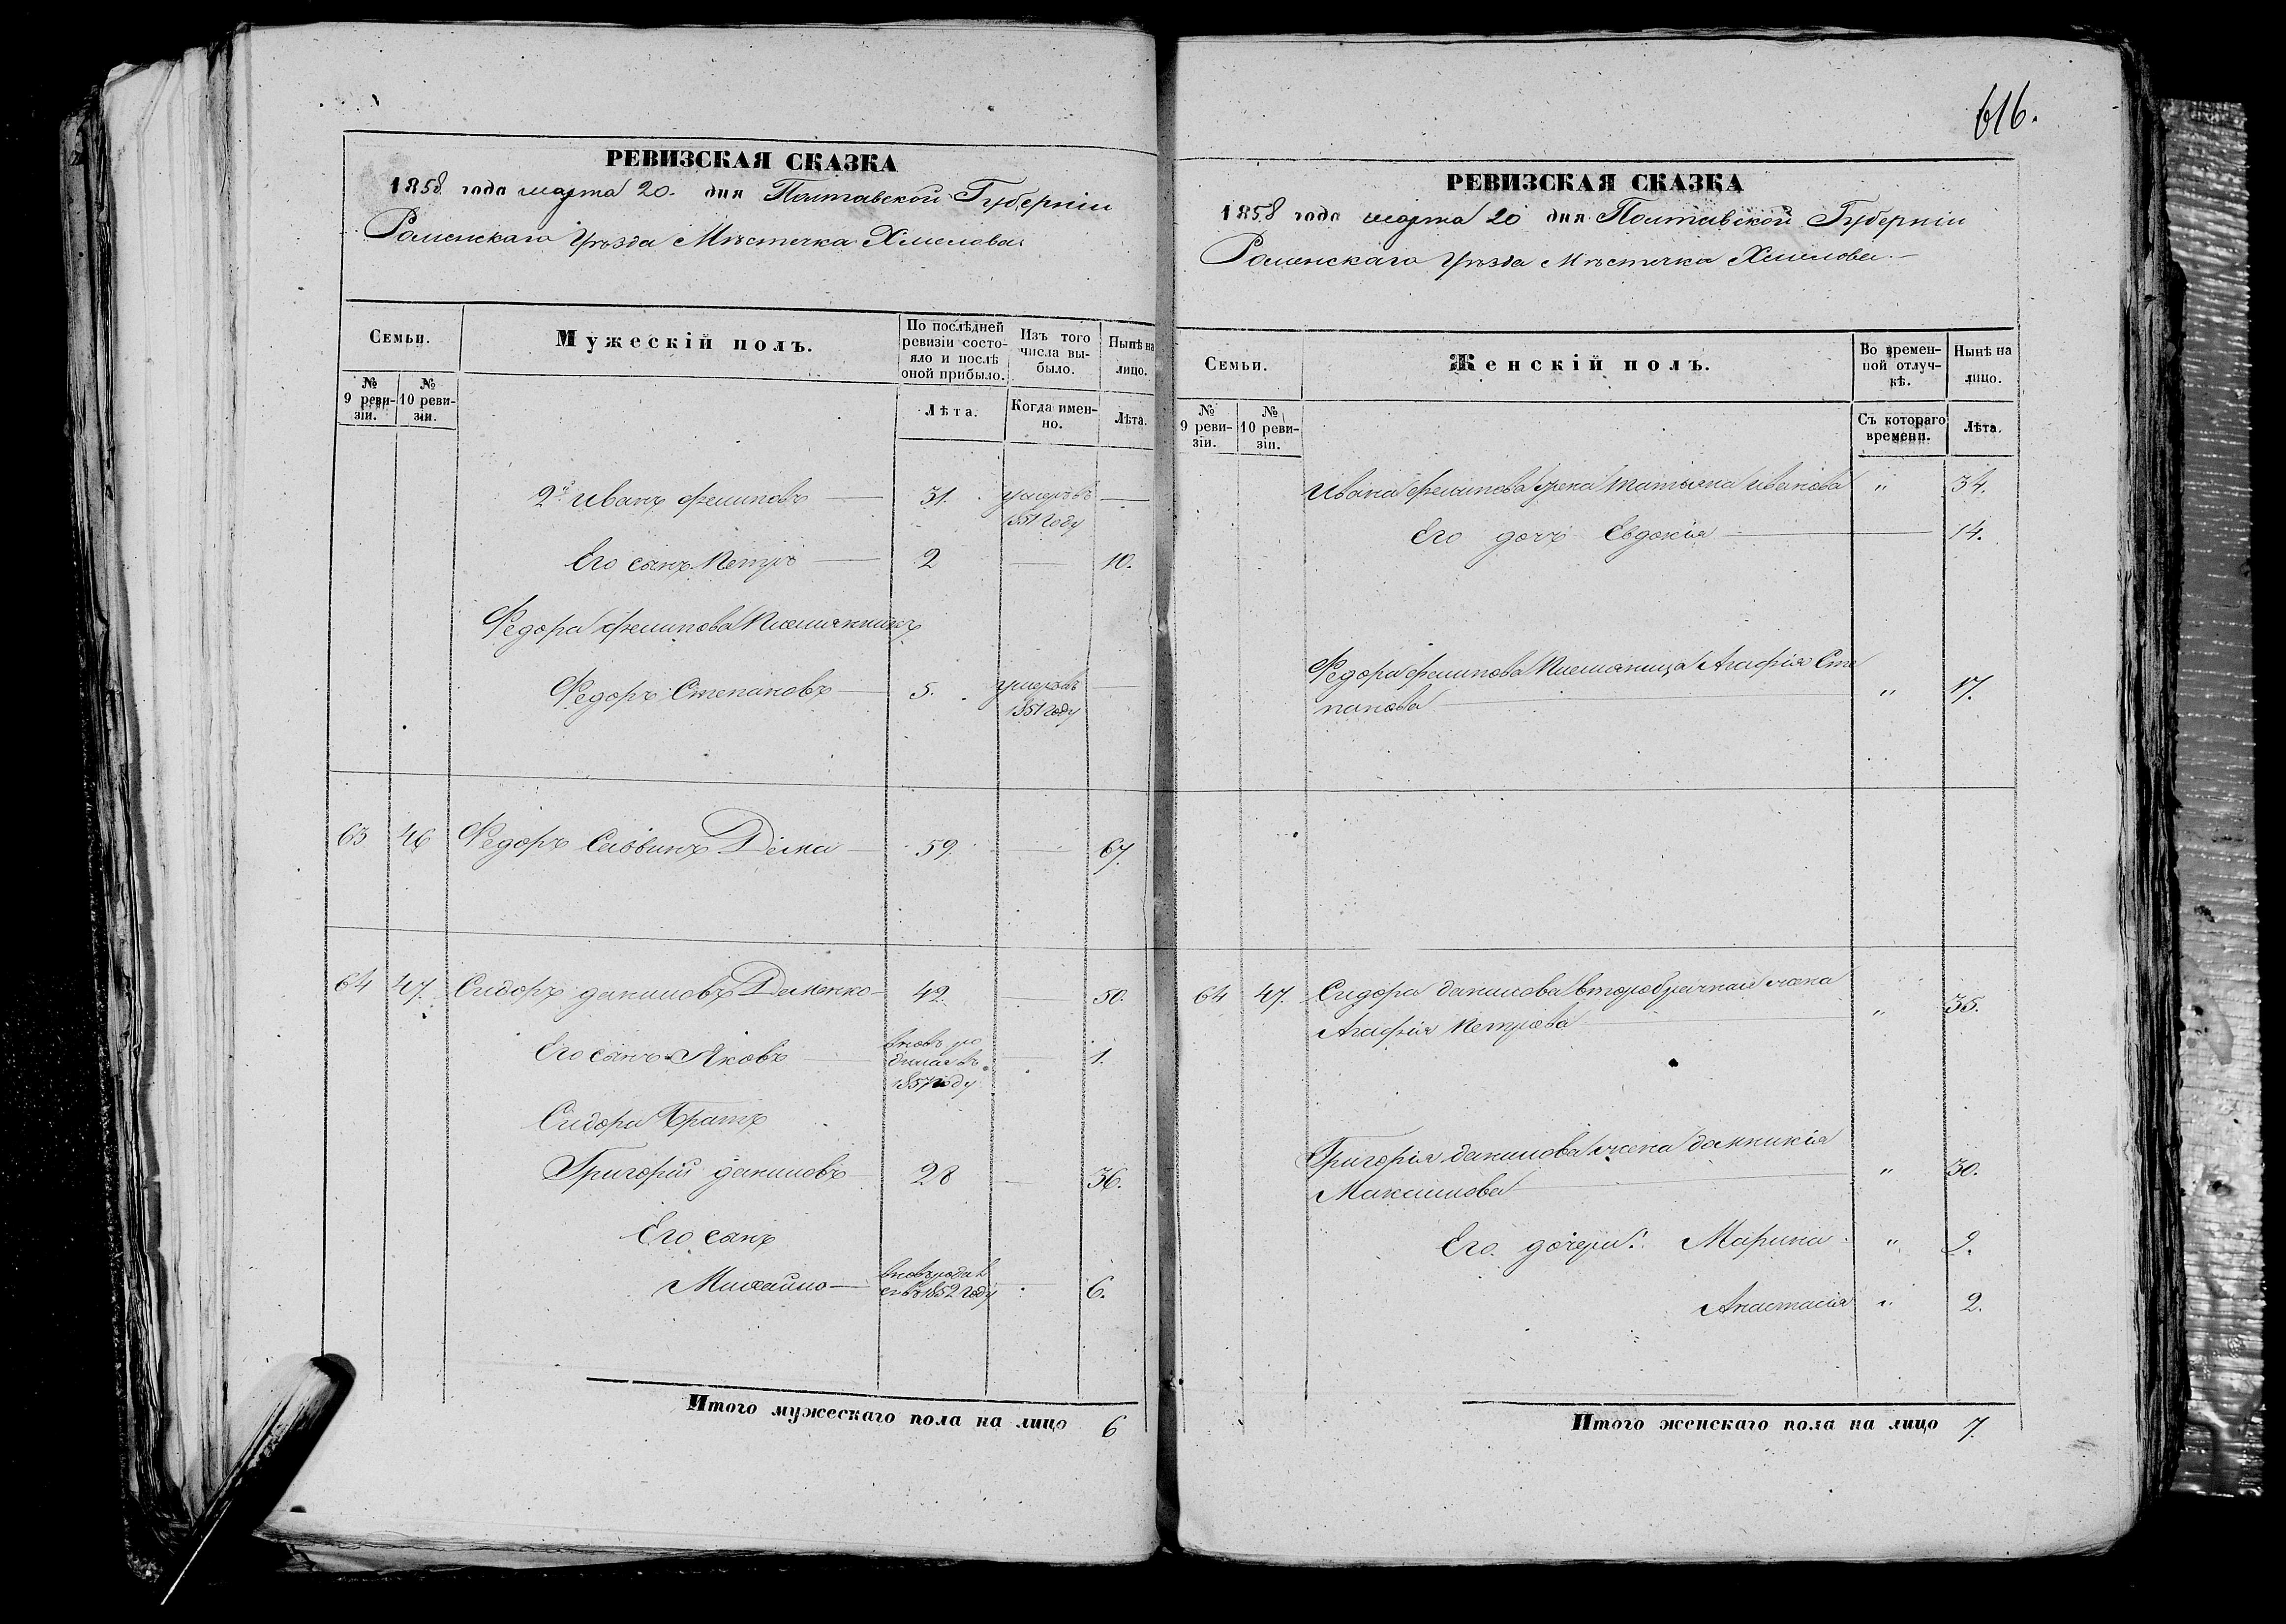 616.
РЕВИЗСКАЯ СКАЗКА
1858 года марта 20. дня Полтавской Губерніи
Роменскаго Уѣзда Мѣстечка Хмелова.
Семьи.
Мужескій полъ.
По послѣдней ревизіи состояло и послѣ оной прибыло.
Изъ того числа выбыло.
Нынѣ на лицо.
№ 9 ревизіи.
№ 10 ревизіи.
Лѣта.
Когда именно.
Лѣта.
2й Иванъ Филиповъ — 31. умеръ въ 1851 году —
Его сынъ Петръ — 2 — 10.
Федора Филипова Племянникъ
Федоръ Степановъ — 5. умеръ въ 1851 году —
63 46 Федоръ Саввинъ — 59. — 67.
64 47. Сидоръ Даниловъ — 42. — 50.
Его сынъ Яковъ — вновь родился въ 1857 году — 1.
Сидора братъ
Григорій Даниловъ — 28 — 36.
Его сынъ
Михайло — вновь родился въ 1852 году — 6.
Итого мужескаго пола на лицо 6
РЕВИЗСКАЯ СКАЗКА
1858 года марта 20 дня Полтавской Губерніи
Роменскаго Уѣзда Мѣстечка Хмелова. —
Семьи.
Женскій полъ.
Во временной отлучкѣ.
Нынѣ на лицо.
№ 9 ревизіи.
№ 10 ревизіи.
Съ котораго времени.
Лѣта.
Ивана Филипова жена Татьяна Иванова " 34.
Его дочь Евдокія — 14.
Федора Филипова Племяница Агафія Сте
панова — " 17.
64 47. Сидора Данилова второбрачная жена
Агафія Петрова — " 35.
Григорія Данилова жена Домникія
Максимова — " 30.
Его дочери: Марина " 9.
Анастасія " 2.
Итого женскаго пола на лицо 7.